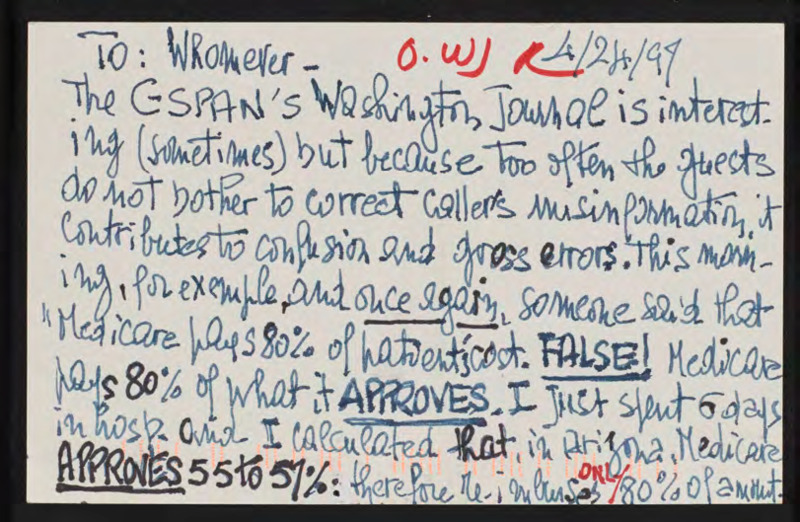 TO: Whomever - O. WJ 4/24/97
The CSPAN's Washington Journal is interest-
ing (sometimes) but because too often the guests
do not bother to correct caller's misinformation, it
contributes to confusion and gross errors. This morn-
ing, for example, and once again, someone said that
"Medicare pays 80% of patient's cost. FALSE! Medicare
pays 80% of what it APPROVES. I just spent 6 days
in hosp. and I calculated that, in Arizona, Medicare
APPROVES 55 to 57%: therefore re-imburses ONLY 80% of amount